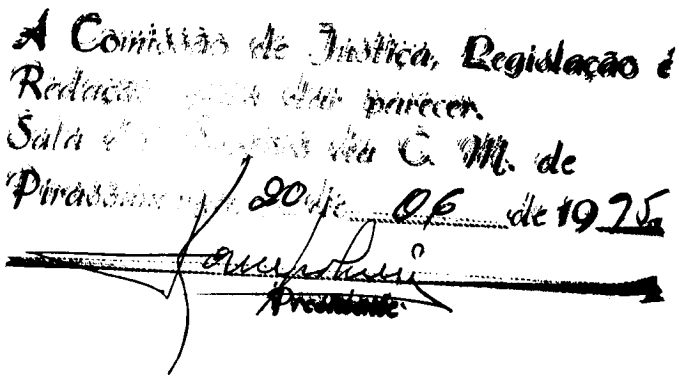 A Comissão de Justiça, Legislação e
Redação para dar parecer.
Sala das Sessões da C. M. de
Pirassununga, 20 de 06 de 1975
Presidente